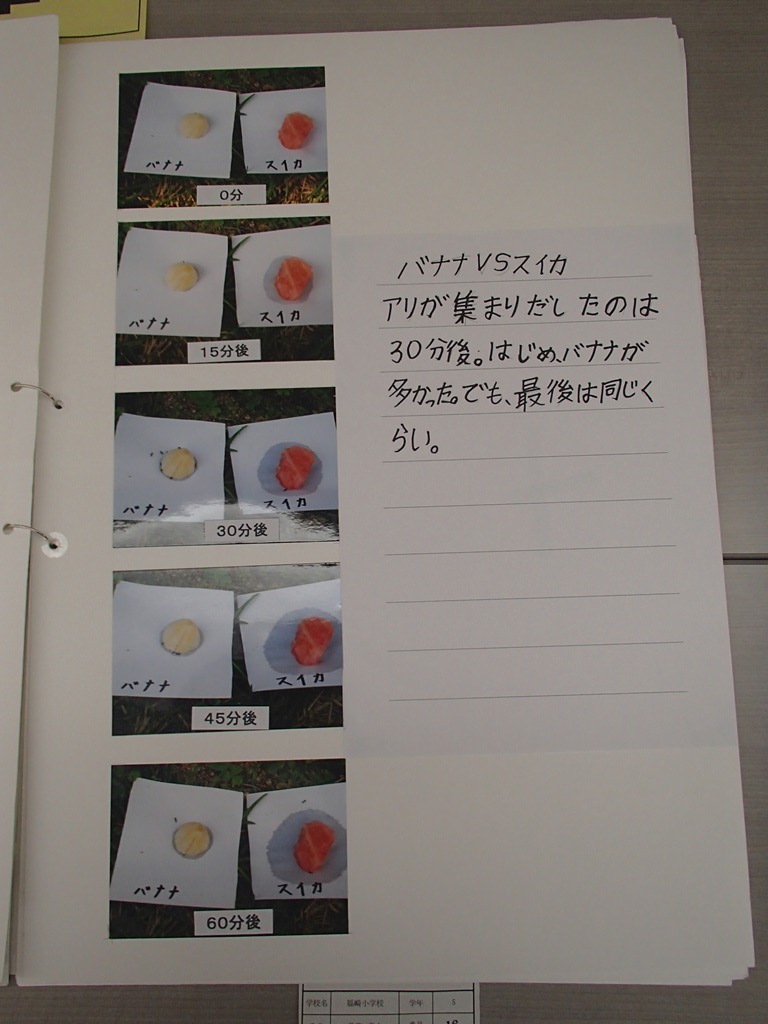 バナナ
スイカ
0分
バナナ
スイカ
15分後
バナナ
スイカ
30分後
バナナ
スイカ
45分後
バナナ
スイカ
60分後
バナナVSスイカ
アリが集まりだしたのは
30分後。はじめ、バナナが
多かった。でも、最後は同じく
らい。
学校名 小学校 学年 5